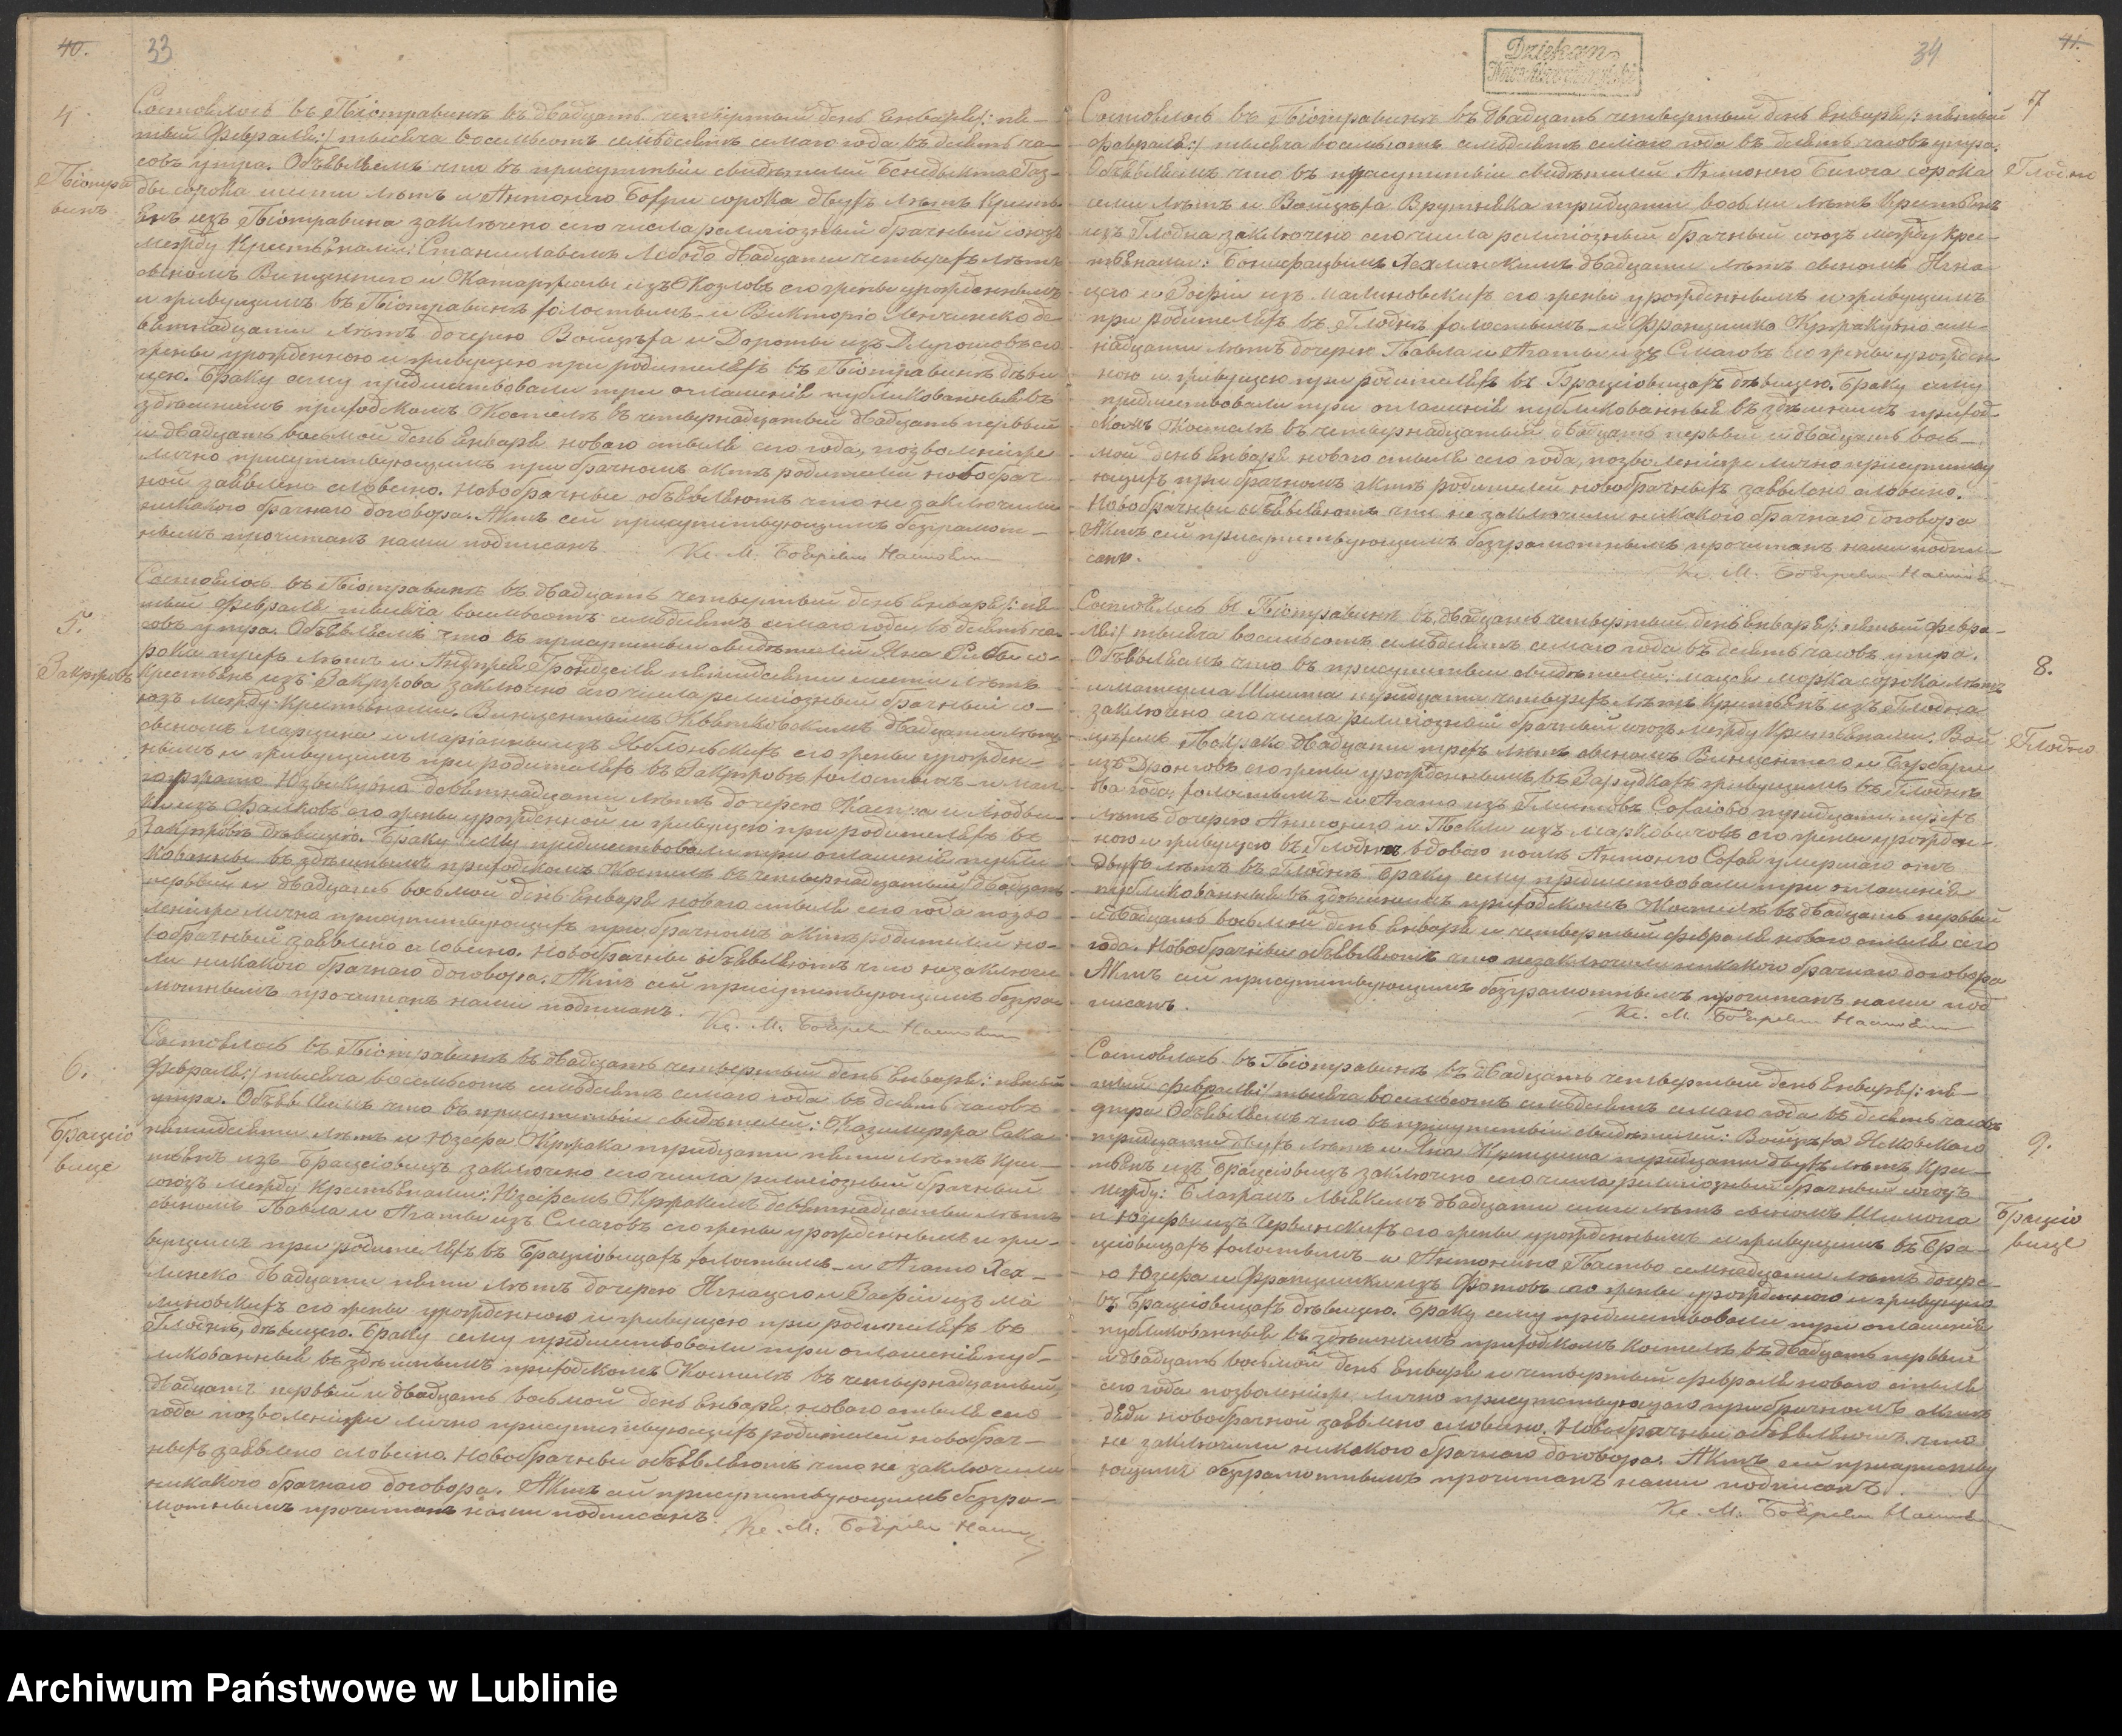 40.
33
4
Піотра
винъ
Состоялось въ Піотравинѣ въ двадцать четвертый день Января /: пя-
тый Февраля :/ тысяча восемьсотъ семьдесятъ седьмаго года въ девять ча-
совъ утра. Объявляемъ что въ присутствіи свидѣтелей Бенедыкта Газ-
ды сорока шести лѣтъ и Антонего сорока двухъ лѣтъ Крестья
янъ изъ Піотравина заключено сего числа религіозный брачный союзъ
между Крестьянами: Станиславомъ Лебода двадцати четырехъ лѣтъ
сыномъ Винцентего и Катаржины изъ Козловъ его жены урожденнымъ
и живущимъ въ Піотравинѣ холостымъ и Викторіо де-
вятнадцати лѣтъ дочерею Войцѣха и Дороты изъ его
жены урожденною и живущею при родителяхъ въ Піотравинѣ дѣви
цею. Браку сему предшествовали три оглашенія публикованныя въ
здѣшнемъ приходскомъ Костелѣ въ четырнадцатый двадцать первый
и двадцать восьмой день Января новаго стиля сего года, позволеніе же
лично присутствующимъ при брачномъ актѣ родителей новобрач-
ной заявлено словесно. Новобрачные объявляютъ что не заключили
никакого брачнаго договора. Актъ сей присутствующимъ безграмот-
нымъ прочитанъ нами подписанъ.
Кс. М.
5.
Закржовъ
Состоялось въ Піотравинѣ въ двадцать четвертый день Января /: пя-
тый Февраля тысяча восемьсотъ семьдесятъ седьмаго года въ девять ча-
совъ утра. Объявляемъ что въ присутствіи свидѣтелей Яна со-
рока трехъ лѣтъ и Андрея пятидесяти шести лѣтъ
Крестьянъ изъ Закржова заключено сего числа религіозный брачный со-
юзъ между Крестьянами. Винцентымъ Квятковскимъ двадцати лѣтъ
сыномъ Марцина и Маріанны изъ Яблоньскихъ его жены урожден-
нымъ и живущимъ при родителяхъ въ Закржовѣ холостымъ и Мал-
горжато девятнадцати лѣтъ дочерею Каспра и Людви-
ки изъ его жены урожденной и живущею при родителяхъ въ
Закржовѣ дѣвицею. Браку сему предшествовали три оглашенія публи-
кованны въ здѣшнемъ приходскомъ Костелѣ въ четырнадцатый двадцать
первый и двадцать восьмой день Января новаго стиля сего года позво-
леніе же лично присутствующихъ при брачномъ актѣ родителей но-
вобрачныхъ заявлено словесно. Новобрачные объявляютъ что незаключи
ли никакого брачнаго договора. Актъ сей присутствующимъ безгра
мотнымъ прочитанъ нами подписанъ.
Кс. М.
6.
Браціо
вице
Состоялось въ Піотравинѣ въ двадцать четвертый день Января /: пятый
Февраля :/ тысяча восемьсотъ семьдесятъ седьмаго года въ девять часовъ
утра. Объявляемъ что въ присутствіи свидѣтелей: Казимиржа
пятидесяти лѣтъ и Юзефа Кржрака тридцати пяти лѣтъ Кре-
стьянъ изъ Браціовицъ заключено сего числа религіозный брачный
союзъ между Крестьянами: Юзефомъ девятнадцати лѣтъ
сыномъ Павла и Агаты изъ Смаговъ его жены урожденнымъ и жи-
вущимъ при родителяхъ въ Браціовицахъ холостымъ и Агато Хех-
линско двадцати пяти лѣтъ дочерею Игнацего и Зофіи изъ Ма
линовскихъ его жены урожденною и живущею при родителяхъ въ
Глоднѣ, дѣвицею. Браку сему предшествовали три оглашенія пуб-
ликованныя въ здѣшнемъ приходскомъ Костелѣ въ четырнадцатый,
двадцать первый и двадцать восьмой день Января новаго стиля сего
года позволеніе же лично присутствующихъ родителей новобрач-
ныхъ заявлено словесно. Новобрачные объявляютъ что не заключили
никакого брачнаго договора. Актъ сей присутствующимъ безгра-
мотнымъ прочитанъ нами подписанъ.
Кс. М.
Dziekan
34
41.
7
Глодно
Состоялось въ Піотравинѣ въ двадцать четвертый день Января /: пятый
Февраля :/ тысяча восемьсотъ семьдесятъ седьмаго года въ девять часовъ утра.
Объявляемъ что въ присутствіи свидѣтелей Антонего сорока
семи лѣтъ и Войцѣха тридцати восьми лѣтъ Крестьянъ
изъ Глодна заключено сего числа религіозный брачный союзъ между Кре-
стьянами: Бонифацымъ Хехлинскимъ двадцати лѣтъ сыномъ Игна
цего и Зофіи изъ Малиновскихъ его жены урожденнымъ и живущимъ
при родителяхъ въ Глоднѣ холостымъ и Францишко сем-
надцати лѣтъ дочерею Павла и Агаты изъ Смаговъ его жены урожден
ною и живущею при родителяхъ въ Браціовицахъ дѣвицею. Браку сему
предшествовали три оглашенія публикованныя въ здѣшнемъ приход-
скомъ Костелѣ въ четырнадцатый двадцать первый и двадцать вось-
мой день Января новаго стиля сего года, позволеніе же лично присутству
ющихъ при брачномъ актѣ родителей новобрачныхъ заявлено словесно.
Новобрачные объявляютъ что не заключили никакого брачнаго договора
Актъ сей присутствующимъ безграмотнымъ прочитанъ нами подпи-
санъ.
Кс. М.
8.
Глодно
Состоялось въ Піотравинѣ въ двадцать четвертый день Января /: пятый Февра-
ля :/ тысяча восемьсотъ семьдесятъ седьмаго года въ девять часовъ утра.
Объявляемъ что въ присутствіи свидѣтелей: Мацея Морка сорока лѣтъ
и Матеуша тридцати четырехъ лѣтъ Крестьянъ изъ Глодна
заключено сего числа религіозный брачный союзъ между Крестьянами. Вой
цѣхомъ двадцати трехъ лѣтъ сыномъ Винцентего и Барбары
изъ Дронговъ его жены урожденнымъ въ живущимъ въ Глоднѣ
холостымъ и Агато изъ тридцати трехъ
лѣтъ дочерею Антонего и Теклы изъ Марковичовъ его жены урожден-
ною и живущею въ Глоднѣ вдовою послѣ Антонего умершаго отъ
двухъ лѣтъ въ Глоднѣ Браку сему предшествовали три оглашенія
публикованныя въ здѣшнемъ приходскомъ Костелѣ въ двадцать первый
и двадцать восьмой день Января и четвертый Февраля новаго стиля сего
года. Новобрачные объявляютъ что незаключили никакого брачнаго договора
Актъ сей присутствующимъ безграмотнымъ прочитанъ нами под
писанъ.
Кс. М.
9.
Браціо
вице
Состоялось въ Піотравинѣ въ двадцать четвертый день Января /: пя-
тый Февраля :/ тысяча восемьсотъ семьдесятъ седьмаго года въ девять часовъ
утра Объявляемъ что въ присутствіи свидѣтелей: Войцѣха
тридцати двухъ лѣтъ и Яна тридцати двухъ лѣтъ Кре-
стьянъ изъ Браціовицъ заключено сего числа религіозный брачный союзъ
между: двадцати семи лѣтъ сыномъ Шимона
и Юзефы изъ его жены урожденнымъ и живущимъ въ Бра-
ціовицахъ холостымъ и Антонино семнадцати лѣтъ дочере-
ю Юзефа и Францишки изъ его жены урожденною и живущею
въ Браціовицахъ дѣвицею. Браку сему предшествовали три оглашенія
публикованныя въ здѣшнемъ приходскомъ Костелѣ въ двадцать первый
и двадцать восьмой день Января и четвертый Февраля новаго стиля
сего года позволеніе же лично присутствующаго при брачномъ актѣ
дѣда новобрачной заявлено словесно. Новобрачные объявляютъ что
не заключили никакого брачнаго договора. Актъ сей присутству
ющимъ безграмотнымъ прочитанъ нами подписанъ.
Кс. М.
Archiwum Państwowe w Lublinie